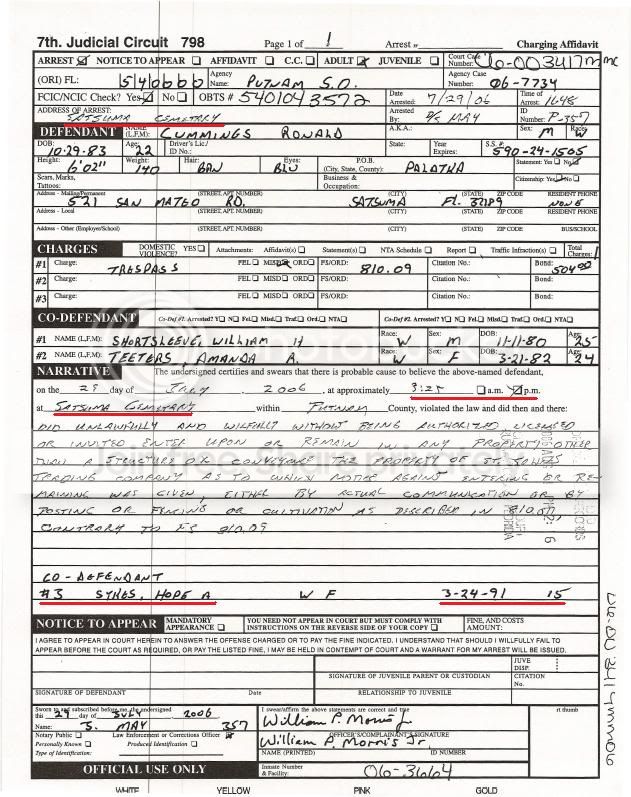 7th. Judicial Circuit 798 Page 1 of 1 Arrest # Charging Affidavit
ARREST NOTICE TO APPEAR AFFIDAVIT C.C. ADULT JUVENILE Court Case Number: 06-003417MM
(ORI) FL: 540000 Agency Name PUTNAM S.O. Agency Case Number: 06-7734
FCIC/NCIC Check? Yes No OBTS # 5401043572 Date Arrested: 7/29/06 Time of Arrest: 1648
ADDRESS OF ARREST: SATSUMA CEMETARY Arrested By: D/S MAY ID Number: P-357
DEFENDANT NAME (L,F,M): CUMMINGS RONALD A.K.A.: Sex: M Race: W
DOB: 10-29-83 Age: 22 Driver's Lic./ ID No.: State: Year Expires: S.S. # 590-24-1505
Height: 6'02" Weight: 140 Hair: BRN Eyes: BLU P.O.B. (City, State, County): PALATKA Statement: Yes No
Scars, Marks, Tattoos: Business & Occupation: Citizenship: Yes No
Address - Mailing/Permanent (STREET, APT. NUMBER) (CITY) (STATE) ZIP CODE RESIDENT PHONE
521 SAN MATEO RD. SATSUMA FL. 32189 NONE
Address - Local (STREET, APT. NUMBER) (CITY) (STATE) ZIP CODE RESIDENT PHONE
Address - Other (Employer/School) (STREET, APT. NUMBER) (CITY) (STATE) ZIP CODE BUS/SCHOOL
CHARGES DOMESTIC VIOLENCE? YES Attachments: Affidavit(s) Statement(s) NTA Schedule Report Traffic Infraction(s) Total Charges 1
#1 Charge: TRESPASS FEL MISD ORD FS/ORD: 810.09 Citation No.: Bond: 504.00
#2 Charge: FEL MISD ORD FS/ORD: Citation No.: Bond:
#3 Charge: FEL MISD ORD FS/ORD: Citation No.: Bond:
CO-DEFENDANT Co-Def #1 Arrested? Y N Fel. Misd. Traf. Ord. NTA Co-Def #2 Arrested? Y N Fel. Misd. Traf. Ord. NTA
#1 NAME (L,F,M) SHORTSLEEVE, WILLIAM H Race: W Sex: M DOB: 11-11-80 Age: 25
#2 NAME (L,F,M) TEETERS, AMANDA A. Race: W Sex: F DOB: 3-21-82 Age: 24
NARRATIVE The undersigned certifies and swears that there is probable cause to believe the above-named defendant,
on the 29 day of JULY 2006 at approximately 3:25 a.m. p.m.
at SATSUMA CEMETARY within PUTNAM County, violated the law and did then and there:
DID UNLAWFULLY AND WILFULLY WITHOUT BEING AUTHORIZED, LICENSED
OR INVITED ENTER UPON OR REMAIN IN ANY PROPERTY OTHER
THAN A STRUCTURE OR CONVEYANCE THE PROPERTY OF ST. JOHNS
TRADING COMPANY AS TO WHICH NOTICE AGAINST ENTERING OR RE-
MAINING WAS GIVEN, EITHER BY ACTUAL COMMUNICATION OR BY
POSTING OR FENCING OR CULTIVATION AS DESCRIBED IN 810.011
CONTRARY TO FS 810.09
CO-DEFENDANT
#3 SYKES, HOPE A W F 3-24-91 15
NOTICE TO APPEAR MANDATORY APPEARANCE YOU NEED NOT APPEAR IN COURT BUT MUST COMPLY WITH INSTRUCTIONS ON THE REVERSE SIDE OF YOUR COPY FINE, AND COSTS AMOUNT:
I AGREE TO APPEAR IN COURT HEREIN TO ANSWER THE OFFENSE CHARGED OR TO PAY THE FINE INDICATED. I UNDERSTAND THAT SHOULD I WILLFULLY FAIL TO
APPEAR BEFORE THE COURT AS REQUIRED, OR PAY THE LISTED FINE, I MAY BE HELD IN CONTEMPT OF COURT AND A WARRANT FOR MY ARREST WILL BE ISSUED.
JUVE DISP.
SIGNATURE OF JUVENILE PARENT OR CUSTODIAN CITATION NO.
SIGNATURE OF DEFENDANT Date RELATIONSHIP TO JUVENILE
Sworn to and subscribed before me, the undersigned I swear/affirm the above statements are correct and true rt thumb
this 29 day of JULY 2006 William P. Morris Jr
Name: J. MAY 357 OFFICER'S/COMPLAINANT'S SIGNATURE
Notary Public Law Enforcement or Corrections Officer William P. Morris Jr
Personally Known Produced Identification NAME (PRINTED) ID NUMBER
Type of Identification:
OFFICIAL USE ONLY Inmate Number & Facility: 06-3664
WHITE YELLOW PINK GOLD